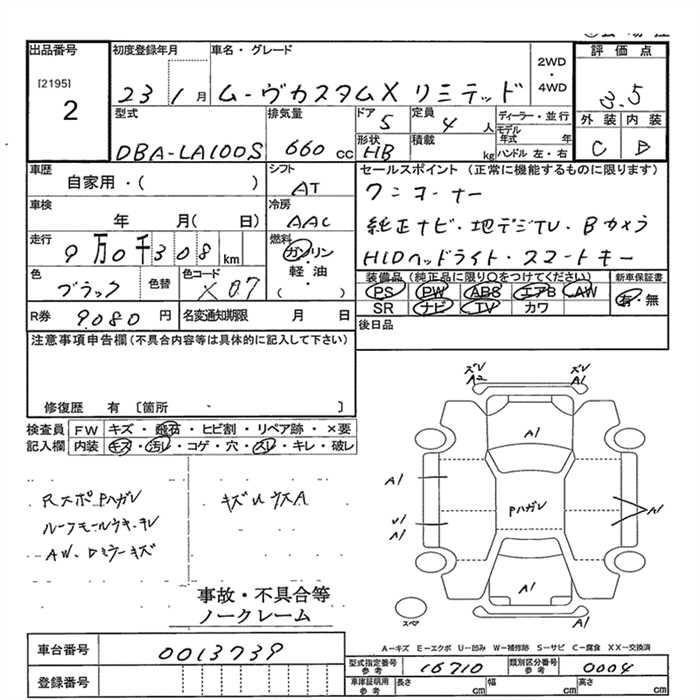 出品番号
[2195]
2
初度登録年月
23 1月
車名・グレード
ムーヴカスタムX リミテッド
2WD
・
4WD
評価点
3.5
外装 内装
C B
型式
DBA-LA100S
排気量
660 cc
ドア
5
定員
4 人
ディーラー・並行
モデル年式 年
形状
HB
積載
kg
ハンドル 左・右
車歴
自家用・( )
シフト
AT
セールスポイント (正常に機能するものに限ります)
ワンオーナー
純正ナビ・地デジTV・Bカメラ
HIDヘッドライト・スマートキー
車検
年 月( 日)
冷房
AAC
走行
9万0千308 km
燃料
ガソリン
軽油
・( )
色
ブラック
色替
色コード
X07
装備品 (純正品に限り○をつけてください)
新車保証書
PS PW ABS エアB AW
有・無
SR ナビ TV カワ
R券
9.080 円
名変通知期限 月 日
後日品
注意事項申告欄(不具合内容等は具体的に記入して下さい)
修復歴 有〔箇所 〕
検査員
記入欄
FW キズ・飛石・ヒビ割・リペア跡・×要
内装 キズ・汚レ・コゲ・穴・スレ・キレ・破レ
RスポPハガレ
ルーフモールウキ、キレ
AW、Dミラーキズ
キズUウスA
ズレ
A2
ズレ
A1
A1
A1
Pハガレ
U1
A1
A1
A1
A1
スペア
事故・不具合等
ノークレーム
A−キズ E−エクボ U−凹み W−補修跡 S−サビ C−腐食 XX−交換済
車台番号
0013739
登録番号
型式指定番号
参考
16710
類別区分番号
参考
0004
車庫証明用
参考
長さ cm
幅 cm
高さ cm